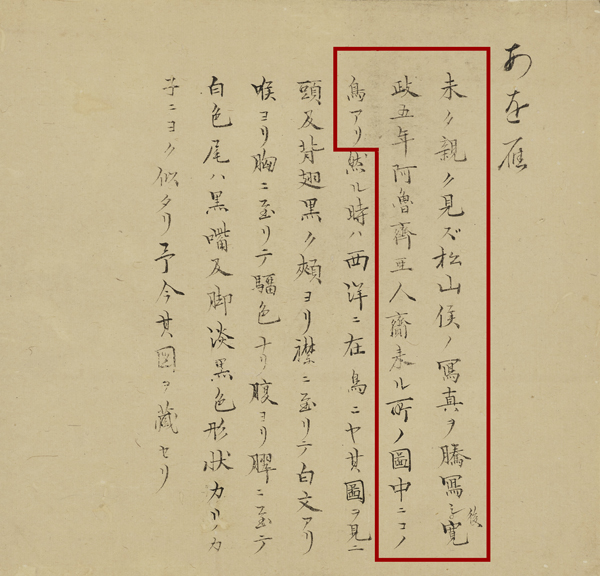 あを雁
未タ親ク見ズ松山侯ノ寫真ヲ謄寫シ寛後
政五年阿魯齊亜人齎来ル所ノ圖中ニコノ
鳥アリ然ル時ハ西洋ニ在鳥ニヤ其圖ヲ見ニ
頭及背翅黒ク頬ヨリ襟ニ至リテ白文アリ
喉ヨリ胸ニ至リテ騮色ナリ腹ヨリ臎ニ至テ
白色尾ハ黒嘴及脚淡黒色形状カリノカ
子ニヨク似タリ予今其圖ヲ蔵セリ